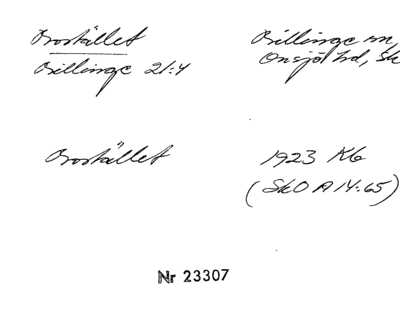 Brostället
Billinge sn,
Billinge 21:4
Onsjö hd, Sk
Brostället
1923 Kb
(SkO A 14:65)
Nr 23307